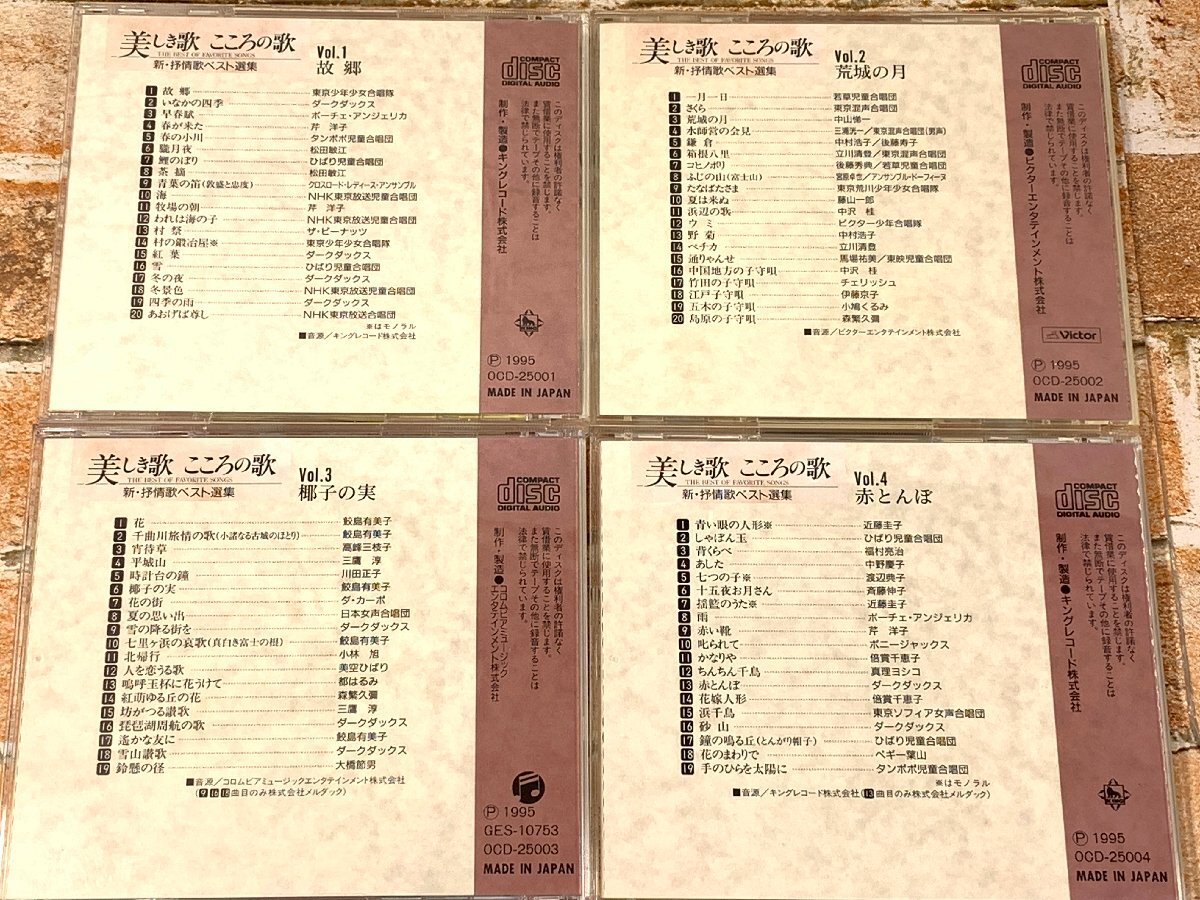 美しき歌 こころの歌
THE BEST OF FAVORITE SONGS
新・抒情歌ベスト選集
Vol.1
故郷
COMPACT
disc
DIGITAL AUDIO
1 故郷 東京少年少女合唱隊
2 いなかの四季 ダークダックス
3 早春賦 ボーチェ・アンジェリカ
4 春が来た 芹 洋子
5 春の小川 タンポポ児童合唱団
6 朧月夜 松田敏江
7 鯉のぼり ひばり児童合唱団
8 茶摘 松田敏江
9 青葉の笛(敦盛と忠度) クロスロード・レディース・アンサンブル
10 海 NHK東京放送児童合唱団
11 牧場の朝 芹 洋子
12 われは海の子 NHK東京放送児童合唱団
13 村祭 ザ・ピーナッツ
14 村の鍛冶屋※ 東京少年少女合唱隊
15 紅葉 ダークダックス
16 雪 ひばり児童合唱団
17 冬の夜 ダークダックス
18 冬景色 NHK東京放送児童合唱団
19 四季の雨 ダークダックス
20 あおげば尊し NHK東京放送合唱団
※はモノラル
■音源/キングレコード株式会社
このディスクは権利者の許諾なく
賃借業に使用することを禁じます。
また無断でテープその他に録音することは
法律で禁じられています。
制作・製造●キングレコード株式会社
Ⓟ 1995
OCD-25001
MADE IN JAPAN
美しき歌 こころの歌
THE BEST OF FAVORITE SONGS
新・抒情歌ベスト選集
Vol.2
荒城の月
COMPACT
disc
DIGITAL AUDIO
1 一月一日 若草児童合唱団
2 さくら 東京混声合唱団
3 荒城の月 中山悌一
4 水師営の会見 三浦洸一/東京混声合唱団(男声)
5 鎌倉 中村浩子/後藤寿子
6 箱根八里 立川清登/東京混声合唱団
7 コヒノボリ 後藤秀典/若草児童合唱団
8 ふじの山(富士山) 宮原卓也/アンサンブル・ドーフィーヌ
9 たなばたさま 東京荒川少年少女合唱隊
10 夏は来ぬ 藤山一郎
11 浜辺の歌 中沢 桂
12 ウミ ビクター少年合唱隊
13 野菊 中村浩子
14 ペチカ 立川清登
15 通りゃんせ 馬場祐美/東映児童合唱団
16 中国地方の子守唄 中沢 桂
17 竹田の子守唄 チェリッシュ
18 江戸子守唄 伊藤京子
19 五木の子守唄 小鳩くるみ
20 島原の子守唄 森繁久彌
■音源/ビクターエンタテインメント株式会社
このディスクは権利者の許諾なく
賃借業に使用することを禁じます。
また無断でテープその他に録音することは
法律で禁じられています。
制作・製造●ビクターエンタテインメント株式会社
Victor
Ⓟ 1995
OCD-25002
MADE IN JAPAN
美しき歌 こころの歌
THE BEST OF FAVORITE SONGS
新・抒情歌ベスト選集
Vol.3
椰子の実
COMPACT
disc
DIGITAL AUDIO
1 花 鮫島有美子
2 千曲川旅情の歌(小諸なる古城のほとり) 鮫島有美子
3 宵待草 高峰三枝子
4 平城山 三鷹 淳
5 時計台の鐘 川田正子
6 椰子の実 鮫島有美子
7 花の街 ダ・カーポ
8 夏の思い出 日本女声合唱団
9 雪の降る街を ダークダックス
10 七里ヶ浜の哀歌(真白き富士の根) 鮫島有美子
11 北帰行 小林 旭
12 人を恋うる歌 美空ひばり
13 嗚呼玉杯に花うけて 都はるみ
14 紅萌ゆる丘の花 森繁久彌
15 坊がつる讃歌 三鷹 淳
16 琵琶湖周航の歌 ダークダックス
17 遙かな友に 鮫島有美子
18 雪山讃歌 ダークダックス
19 鈴懸の径 大橋節男
■音源/コロムビアミュージックエンタテインメント株式会社
(9 16 18曲目のみ株式会社メルダック)
このディスクは権利者の許諾なく
賃借業に使用することを禁じます。
また無断でテープその他に録音することは
法律で禁じられています。
制作・製造●コロムビアミュージックエンタテインメント株式会社
Ⓟ 1995
GES-10753
OCD-25003
MADE IN JAPAN
美しき歌 こころの歌
THE BEST OF FAVORITE SONGS
新・抒情歌ベスト選集
Vol.4
赤とんぼ
COMPACT
disc
DIGITAL AUDIO
1 青い眼の人形※ 近藤圭子
2 しゃぼん玉 ひばり児童合唱団
3 背くらべ 福村亮治
4 あした 中野慶子
5 七つの子※ 渡辺典子
6 十五夜お月さん 斉藤伸子
7 揺籃のうた※ 近藤圭子
8 雨 ボーチェ・アンジェリカ
9 赤い靴 芹 洋子
10 叱られて ボニージャックス
11 かなりや 倍賞千恵子
12 ちんちん千鳥 真理ヨシコ
13 赤とんぼ ダークダックス
14 花嫁人形 倍賞千恵子
15 浜千鳥 東京ソフィア女声合唱団
16 砂山 ダークダックス
17 鐘の鳴る丘(とんがり帽子) ひばり児童合唱団
18 花のまわりで ペギー葉山
19 手のひらを太陽に タンポポ児童合唱団
※はモノラル
■音源/キングレコード株式会社(13曲目のみ株式会社メルダック)
このディスクは権利者の許諾なく
賃借業に使用することを禁じます。
また無断でテープその他に録音することは
法律で禁じられています。
制作・製造●キングレコード株式会社
Ⓟ 1995
OCD-25004
MADE IN JAPAN